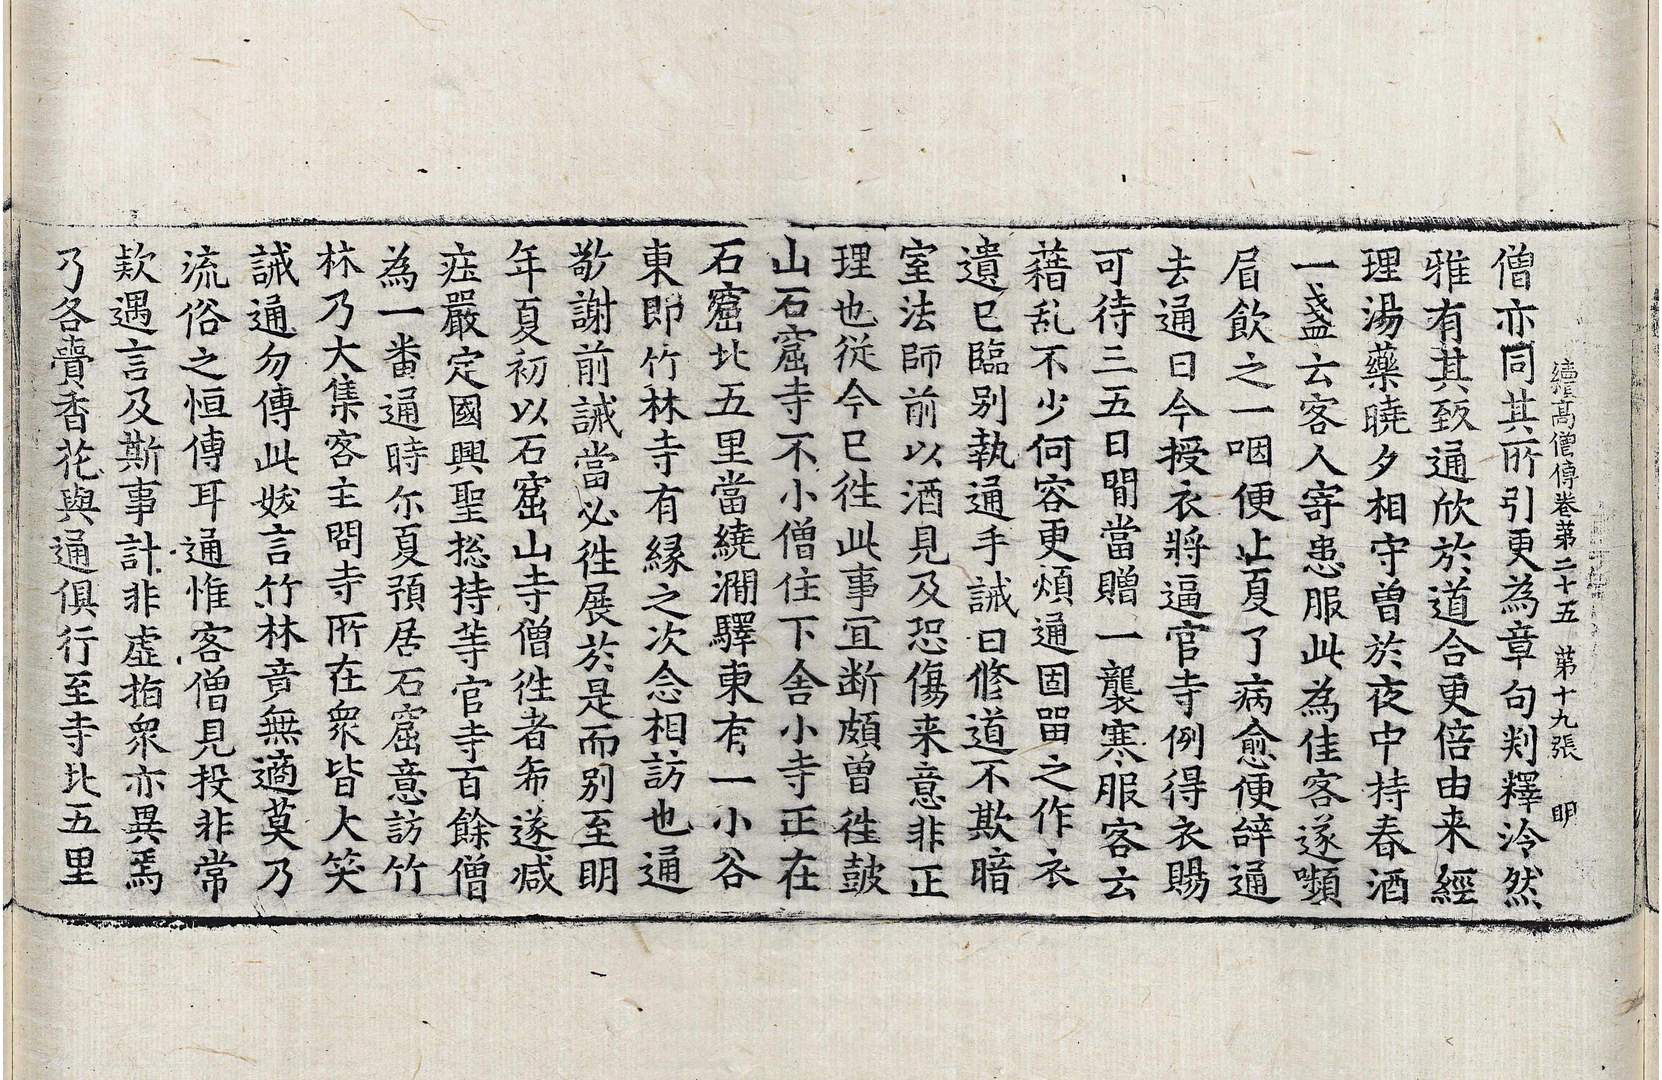 續高僧傳卷苐二十五　第十九張　明
僧亦同其所引更為章句判釋泠然
雅有其致通欣於道合更倍由来經
理湯藥曉夕相守曽於夜中持春酒
一盞云客人寄患服此為佳客遂嚬
眉飲之一咽便止夏了病愈便辝通
去通曰今授衣將逼官寺例得衣賜
可待三五日閒當贈一襲寒服客云
藉乱不少何容更煩通固留之作衣
遺已臨别執通手誡曰修道不欺暗
室法師前以酒見及恐傷来意非正
理也従今已徃此事冝断頗曽徃鼓
山石窟寺不小僧住下舍小寺正在
石窟北五里當繞澗驛東有一小谷
東即竹林寺有縁之次念相訪也通
敬謝前誡當必徃展於是而别至明
年夏初以石窟山寺僧徃者希遂减
莊嚴定國興聖揔持等官寺百餘僧
為一畨通時尔夏預居石窟意訪竹
林乃大集客主問寺所在衆皆大笑
誡通勿傳此妭言竹林竟無適莫乃
流俗之恒傳耳通惟客僧見投非常
欵遇言及斯事計非虛指衆亦異焉
乃各賷香花與通俱行至寺北五里